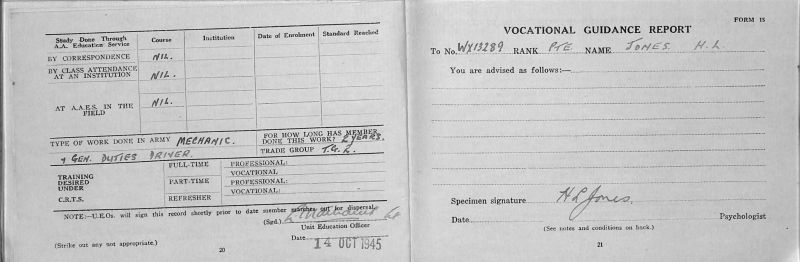 Study Done Through A.A. Education Service
Course
Institution
Date of Enrolment
Standard Reached
BY CORRESPONDENCE NIL.
BY CLASS ATTENDANCE AT AN INSTITUTION NIL.
AT A.A.E.S. IN THE FIELD NIL.
TYPE OF WORK DONE IN ARMY MECHANIC.
FOR HOW LONG HAS MEMBER DONE THIS WORK? 2 YEARS.
& GEN. DUTIES DRIVER.
TRADE GROUP T.G. 2.
TRAINING DESIRED UNDER C.R.T.S.
FULL-TIME
PROFESSIONAL:
VOCATIONAL
PART-TIME
PROFESSIONAL:
VOCATIONAL:
REFRESHER
NOTE:—U.E.Os. will sign this record shortly prior to date member marches out for dispersal.
(Sgd.)
Unit Education Officer
Date 14 OCT 1945
(Strike out any not appropriate.)
20
FORM 15
VOCATIONAL GUIDANCE REPORT
To No. WX13289 RANK PTE NAME JONES. H.L.
You are advised as follows:—
Specimen signature HLJones.
Date
Psychologist
(See notes and conditions on back.)
21